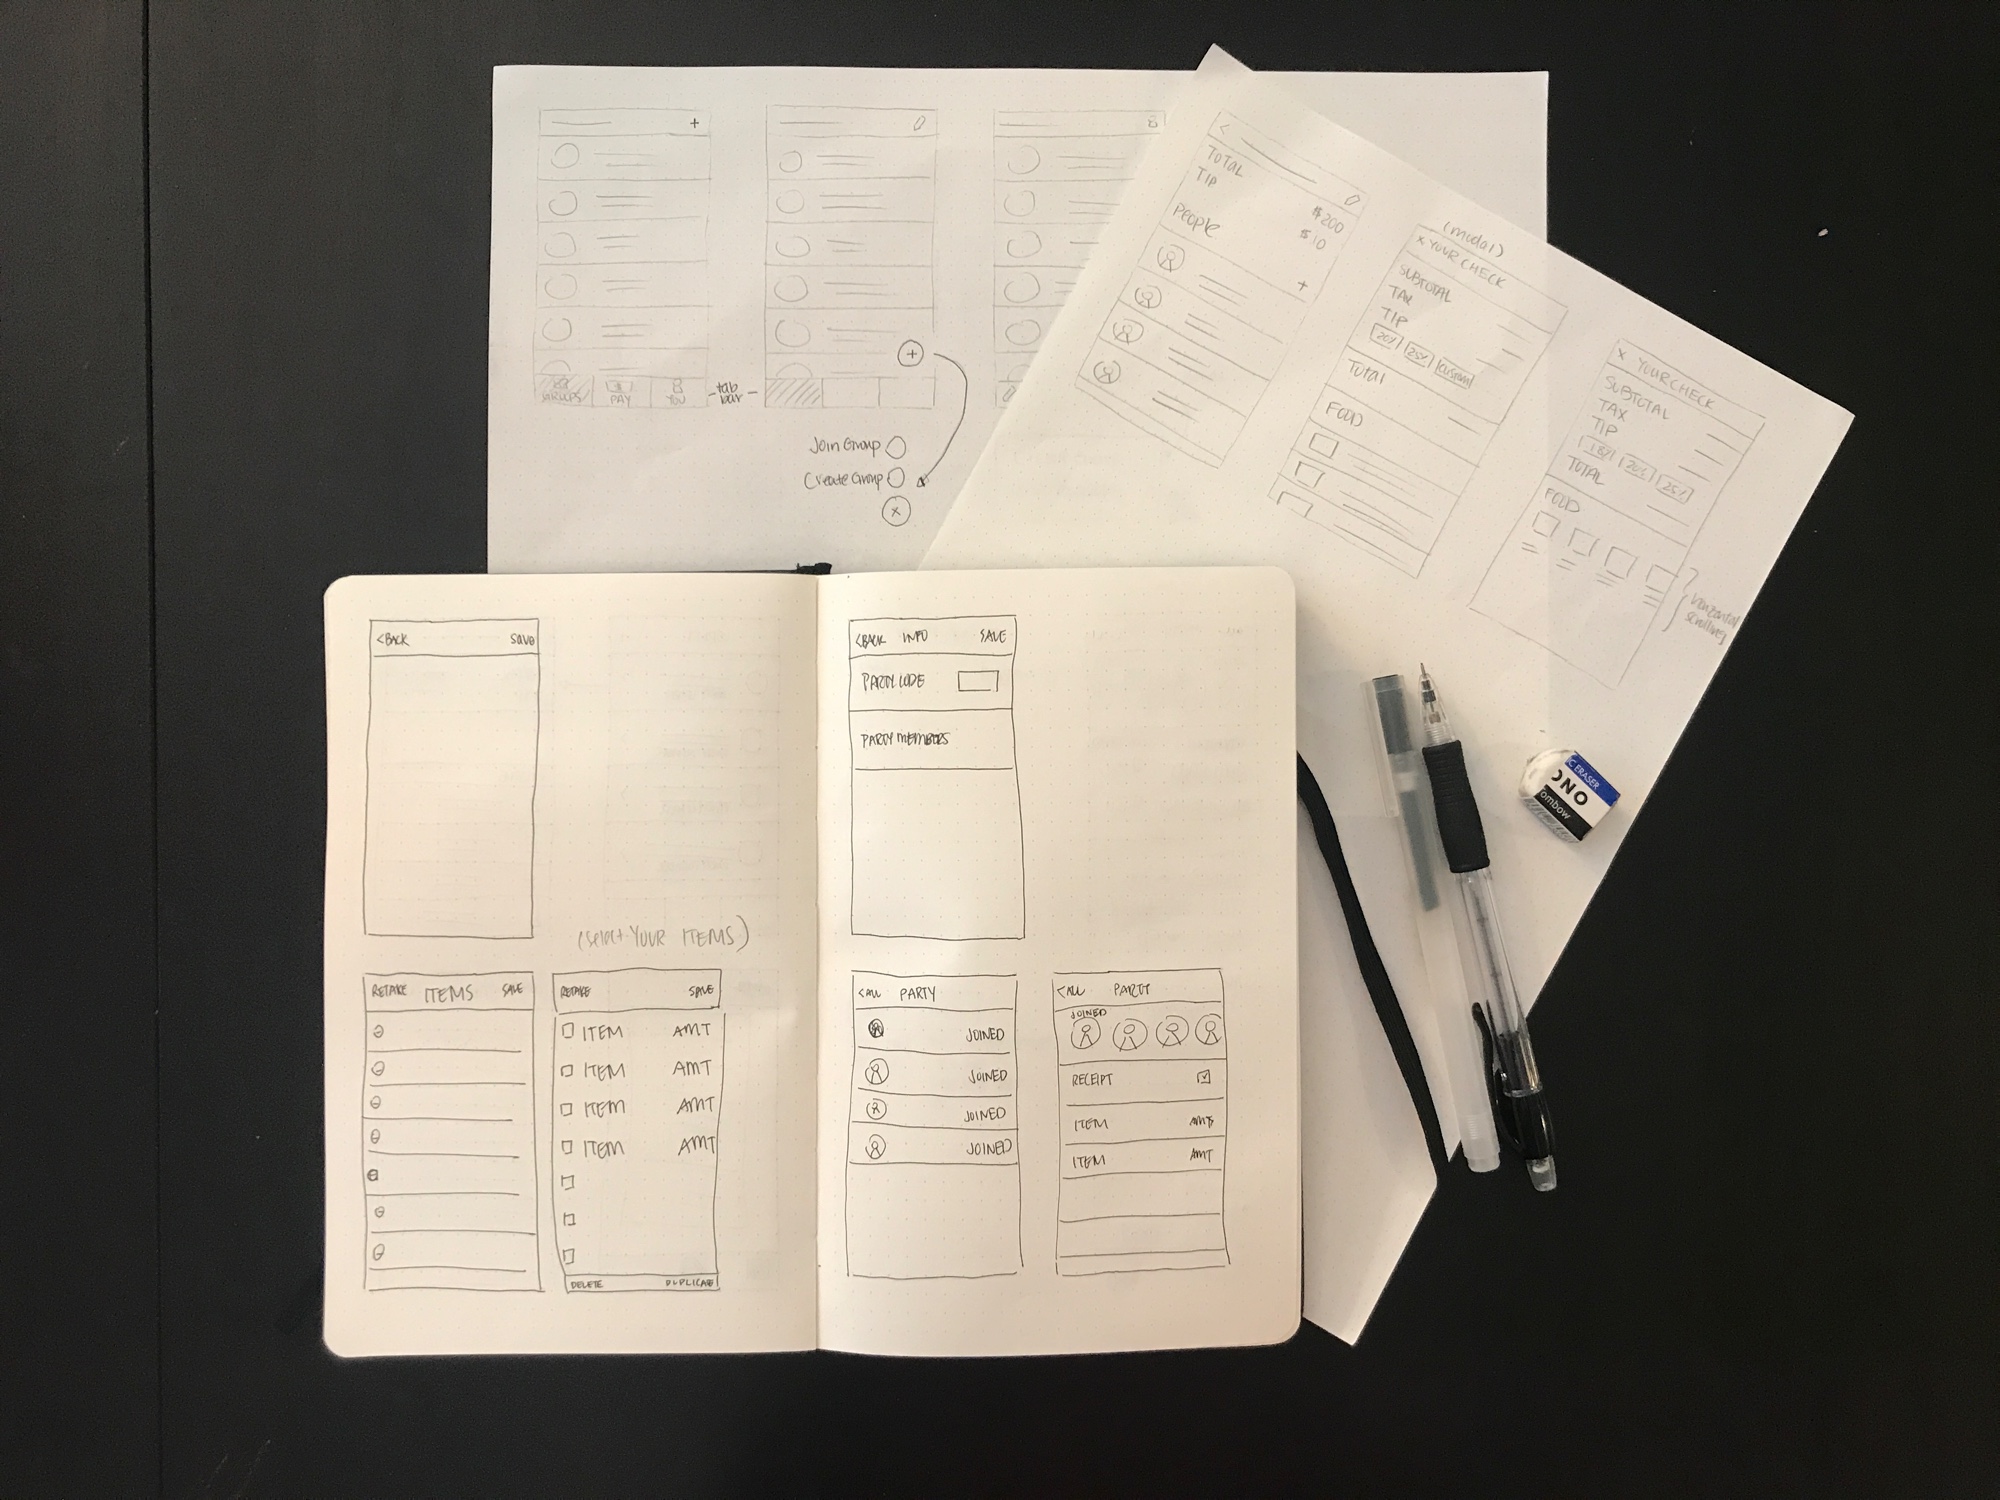 +
GROUPS PAY YOU
-tab
bar-
+
Join Group
Create Group
x
<
TOTAL $200
TIP $10
People +
(modal)
x YOUR CHECK
SUBTOTAL
TAX
TIP
20% 25% custom
Total
FOOD
x YOUR CHECK
SUBTOTAL
TAX
TIP
18% 20% 25%
TOTAL
FOOD
horizontal
scrolling
<BACK save
(select YOUR ITEMS)
RETAKE ITEMS SAVE
RETAKE SAVE
ITEM AMT
ITEM AMT
ITEM AMT
ITEM AMT
DELETE DUPLICATE
<BACK INFO SAVE
PARTY CODE
PARTY MEMBERS
<ALL PARTY
JOINED
JOINED
JOINED
JOINED
<ALL PARTY
JOINED
RECEIPT
ITEM AMT
ITEM AMT
C ERASER
ONO
ombow